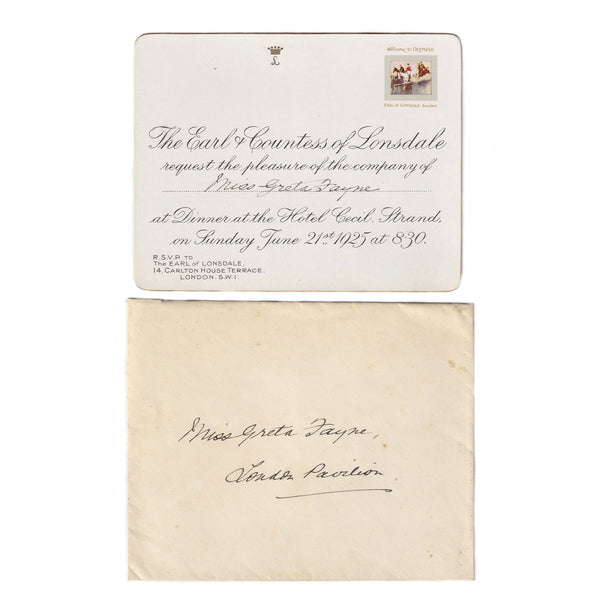 L
Welcome to OLYMPIA
The Earl & Countess of Lonsdale
request the pleasure of the company of
Miss Greta Fayne
at Dinner at the Hotel Cecil, Strand,
on Sunday June 21st 1925 at 8.30.
R.S.V.P. TO
THE EARL OF LONSDALE,
14, CARLTON HOUSE TERRACE,
LONDON. S.W.1.
Miss Greta Fayne,
London Pavilion.